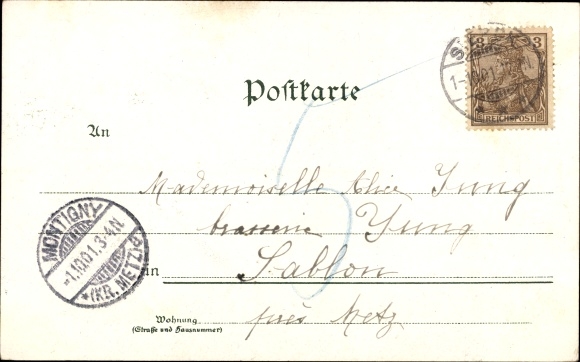 3 3
REICHSPOST
1-10.01
Postkarte
An
Mademoiselle Alice Jung
brasserie Jung
in Sablon
près Metz
Wohnung
(Straße und Hausnummer)
MONTIGNY
*1.10.01.3-4N
*(KR. METZ)a
5